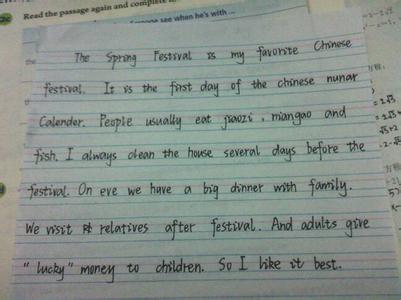 Read the passage again and complete
someone see when he's with ...
The Spring Festival is my favorite Chinese
festival. It is the first day of the chinese nunar
Calender. People usually eat jiaozi, niangao and
fish. I always clean the house several days before the
festival. On eve we have a big dinner with family.
We visit relatives after festival. And adults give
"lucky" money to children. So I like it best.